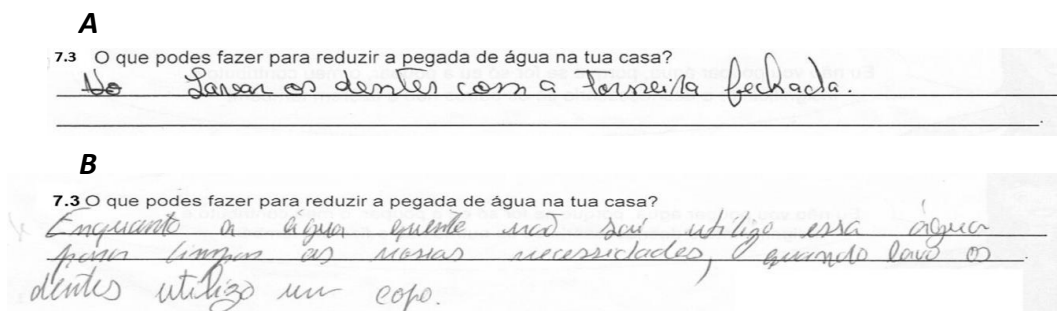 A
7.3 O que podes fazer para reduzir a pegada de água na tua casa?
Lavar os dentes com a torneira fechada.
B
7.3 O que podes fazer para reduzir a pegada de água na tua casa?
Enquanto a água quente não sai utilizo essa água
para limpar as nossas necessidades, quando lavo os
dentes utilizo um copo.